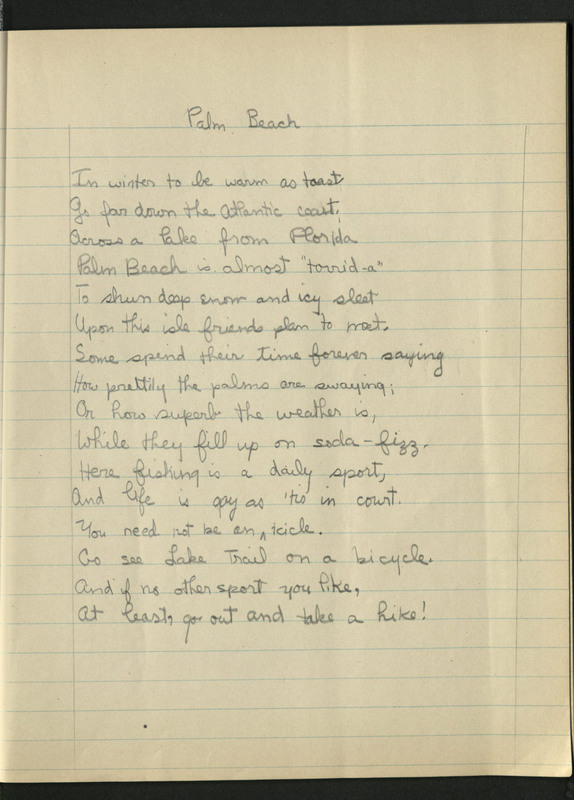 Palm Beach
In winter to be warm as toast
Go far down the Atlantic coast;
Across a lake from Florida
Palm Beach is almost "torrid-a"
To shun deep snow and icy sleet
Upon this isle friends plan to meet.
Some spend their time forever saying
How prettily the palms are swaying;
Or how superb the weather is,
While they fill up on soda-fizz.
Here fishing is a daily sport,
And life is gay as 'tis in court.
You need not be an icicle.
Go see Lake Trail on a bicycle.
And if no other sport you like,
At least, go out and take a hike!